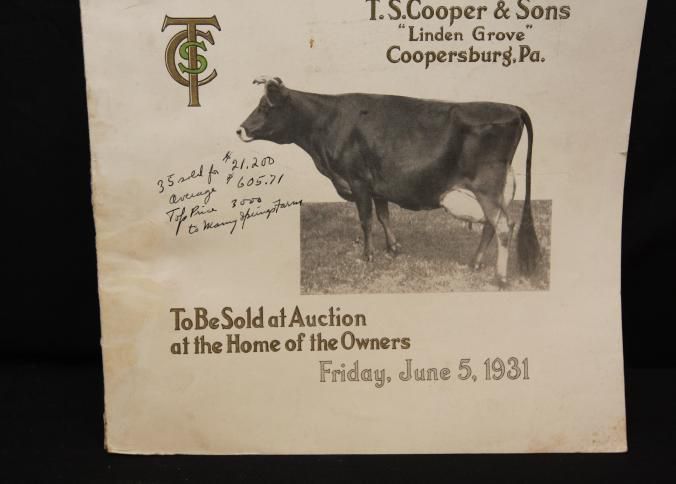 T.S.Cooper & Sons
"Linden Grove"
Coopersburg, Pa.
TSC
35 sold for $21,200
average $605.71
Top Price 3000
to Many Springs Farm
To Be Sold at Auction
at the Home of the Owners
Friday, June 5, 1931